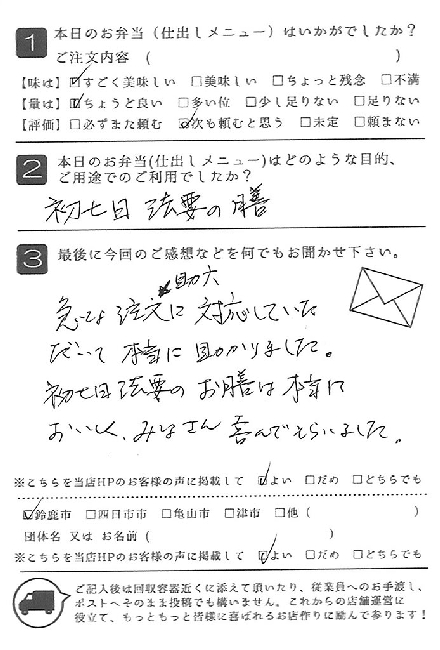 1 本日のお弁当（仕出しメニュー）はいかがでしたか？
ご注文内容 (　　　)
【味は】☑すごく美味しい □美味しい □ちょっと残念 □不満
【量は】☑ちょうど良い □多い位 □少し足りない □足りない
【評価】□必ずまた頼む ☑次も頼むと思う □未定 □頼まない
2 本日のお弁当(仕出しメニュー)はどのような目的、
ご用途でのご利用でしたか？
初七日 法要の膳
3 最後に今回のご感想などを何でもお聞かせ下さい。
急な注文に 対応していた
だいて 本当に 助かりました。
初七日法要の お膳は 本当に
おいしく、みなさん 喜んでもらいました。
※こちらを当店HPのお客様の声に掲載して ☑よい □だめ □どちらでも
☑鈴鹿市 □四日市市 □亀山市 □津市 □他 (　　　)
団体名 又は お名前 (　　　)
※こちらを当店HPのお客様の声に掲載して ☑よい □だめ □どちらでも
ご記入後は回収容器近くに添えて頂いたり、従業員へのお手渡し、
ポストへそのまま投稿でも構いません。これからの店舗運営に
役立て、もっともっと皆様に喜ばれるお店作りに励んで参ります！